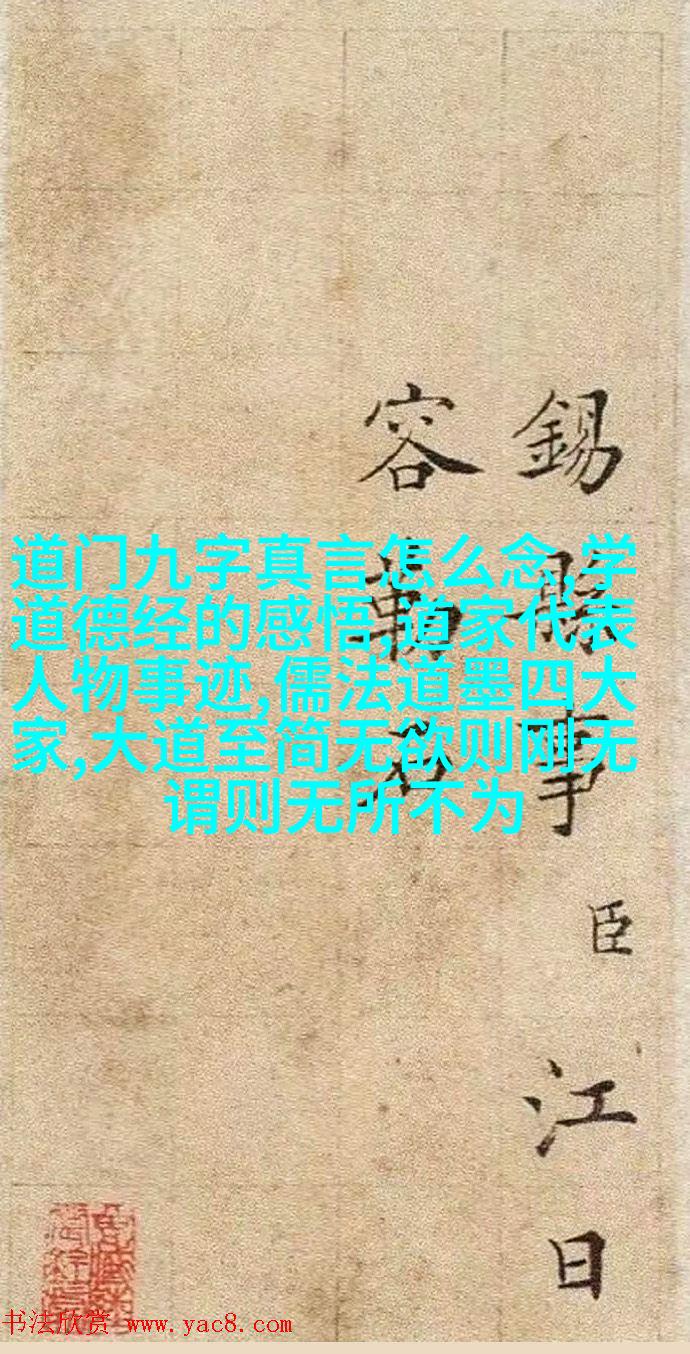 道门九字真言怎么念,学
道德经的感悟,道家代表
人物事迹,儒法道墨四大
家,大道至简无欲则刚无
谓则无所不为
錫縣事臣江日
容勒石
书法欣赏 www.yac8.com